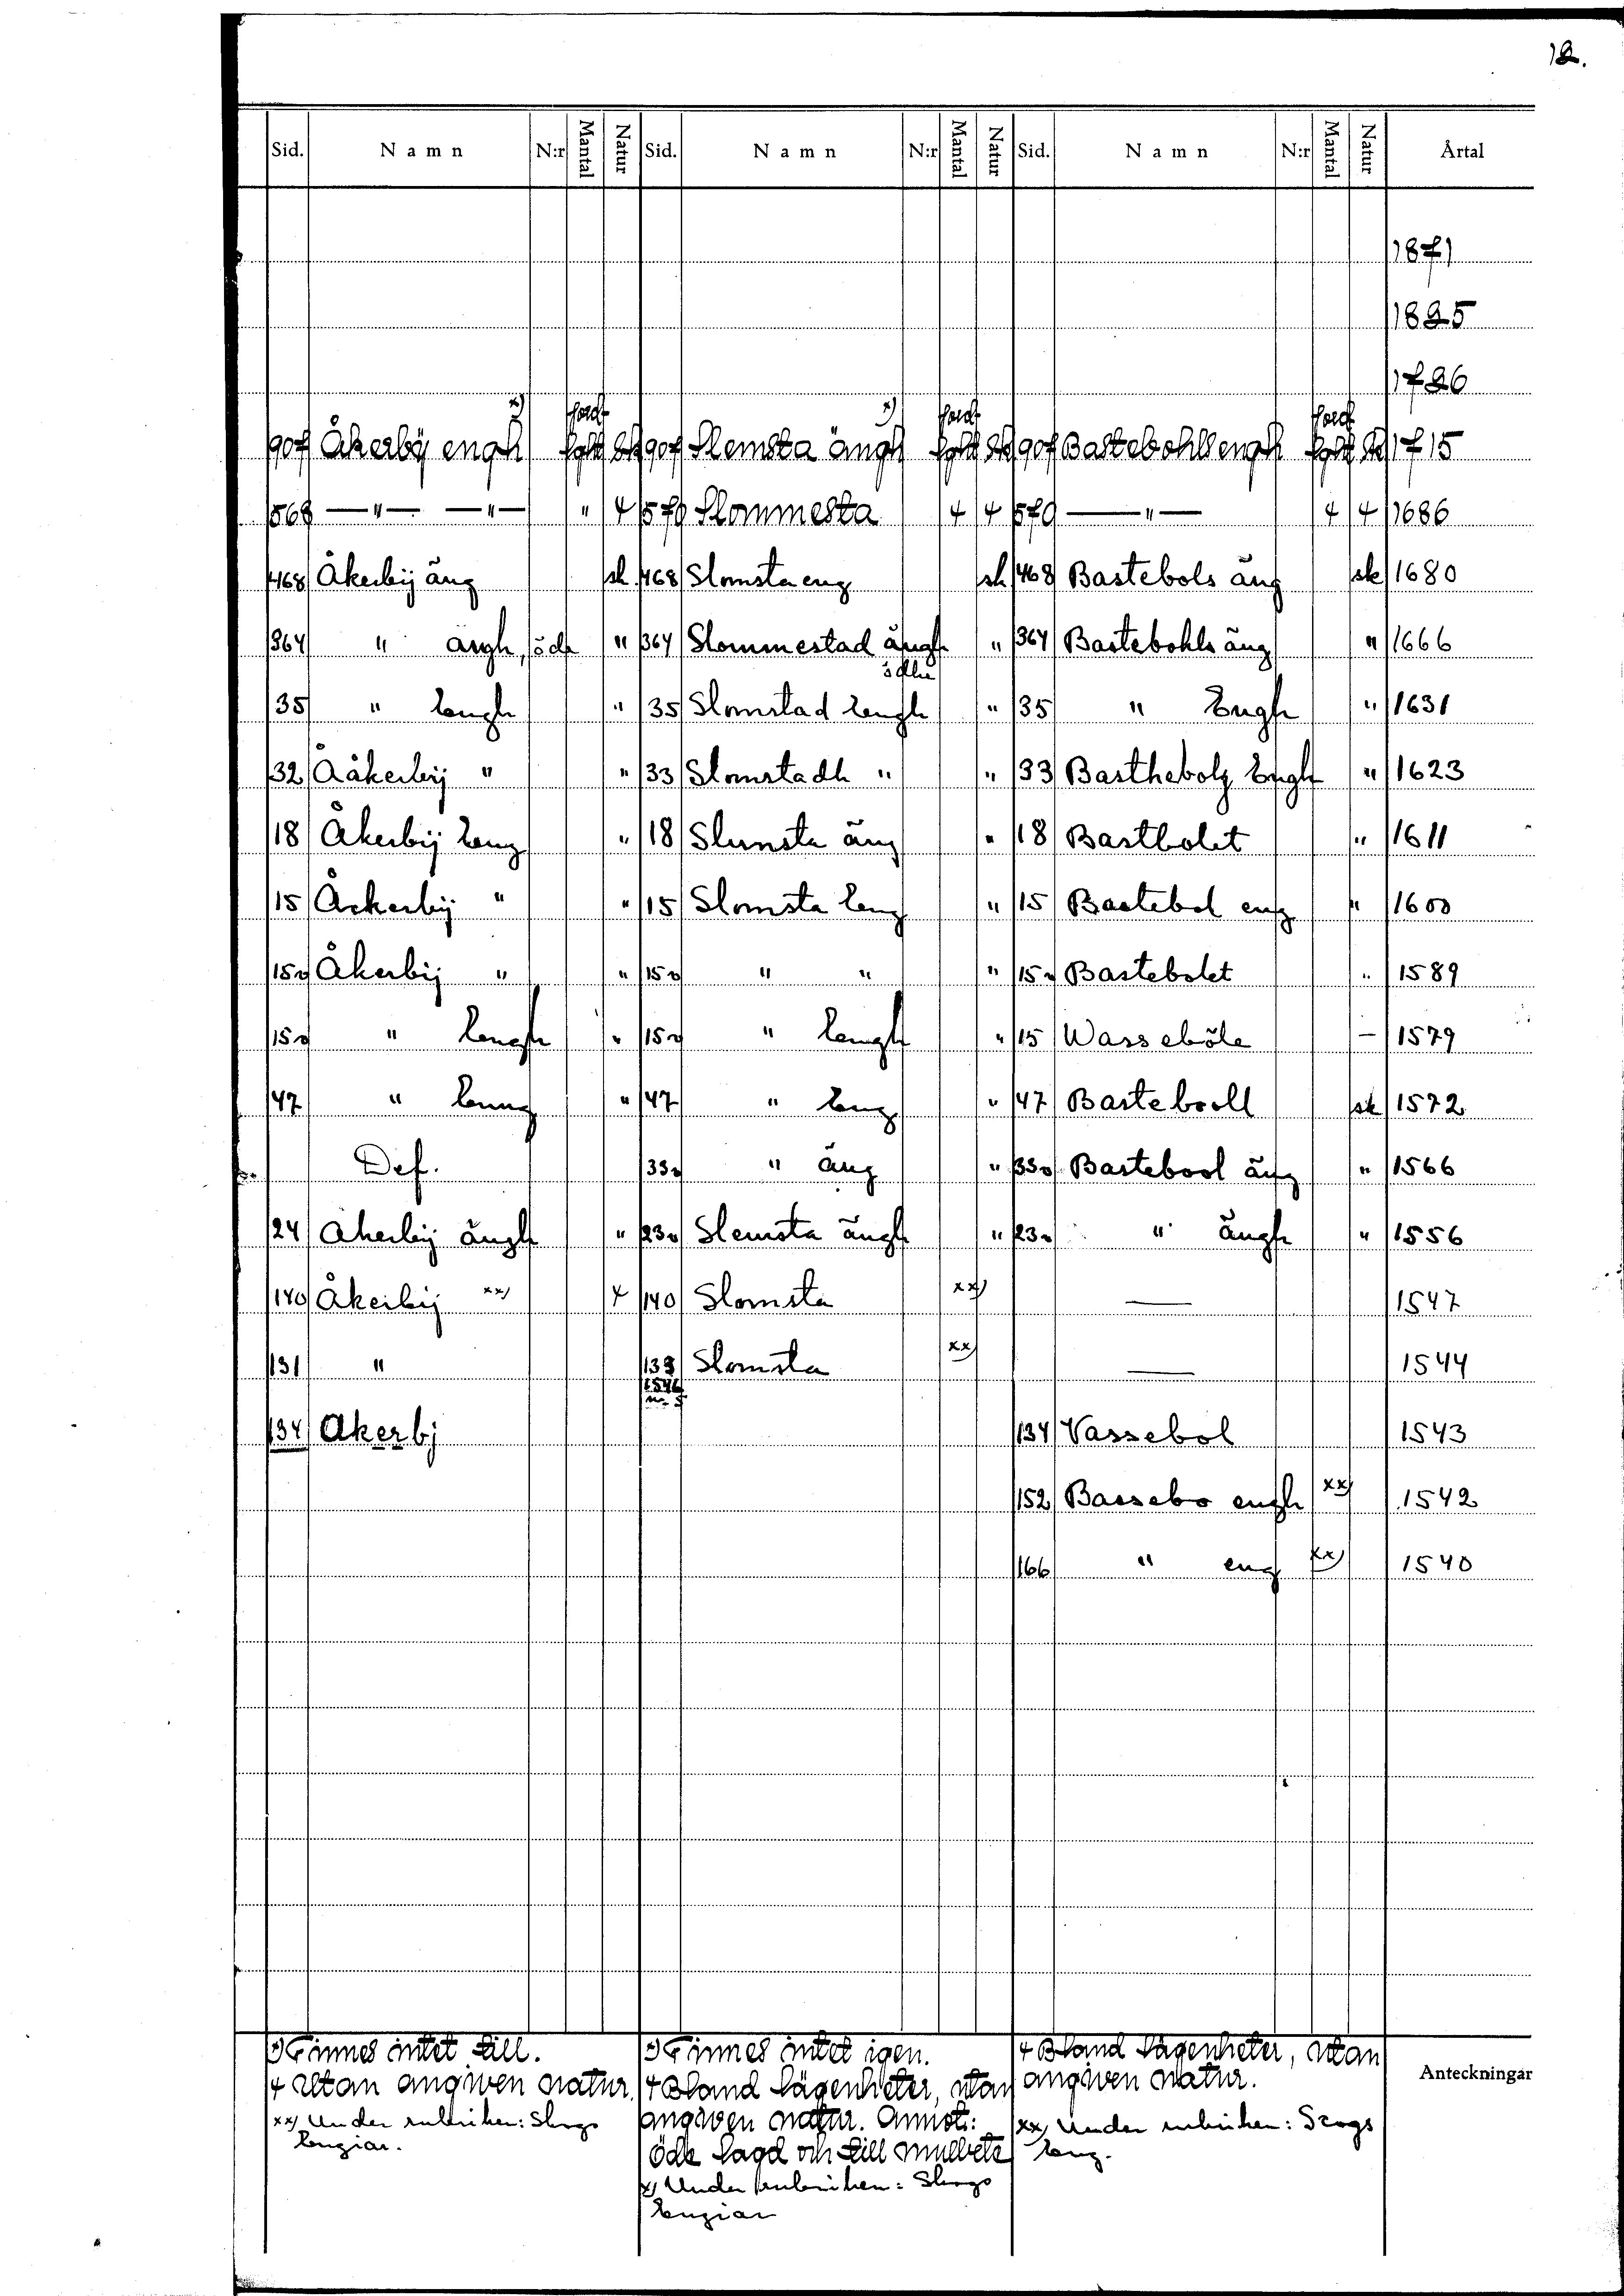 12.
Sid. Namn N:r Mantal Natur Sid. Namn N:r Mantal Natur Sid. Namn N:r Mantal Natur Årtal
1871
1825
1726
x) ford x) ford ford
907 Åkerbÿ engh Sk 907 Slemsta ängh Sk 907 Bastebohls engh Sk 1715
568 —"— —"— " 4 570 Slommesta 4 4 570 —"— 4 4 1686
468 Åkerbij äng sk 468 Slomsta eng sk 468 Bastebols äng sk 1680
364 " ängh, öde " 364 Slommestad ängh " 364 Bastebohls äng " 1666
ödhe
35 " Eengh " 35 Slomstad Eengh " 35 " Engh " 1631
32 Ååkerbij " " 33 Slomstadh " " 33 Basthebolz Engh " 1623
18 Åkerbij Eeng " 18 Slumsta äng " 18 Bastbolet " 1611
15 Åckerbij " " 15 Slomsta Eeng " 15 Bastebol eng " 1600
15v Åkerbij " " 15v " " " 15v Bastebolet " 1589
15v " Eengh " 15v " Eengh " 15 Wasseböle – 1579
47 " Eenng " 47 " Eeng " 47 Bastebooll sk 1572
Def. 33v " äng " 33v Bastebool äng " 1566
24 Akerbij ängh " 23v Slemsta ängh " 23v " ängh " 1556
140 Åkerbij xx) 4 140 Slomsta xx) — 1547
131 " 133 Slomsta xx) — 1544
1546
134 Akerbj 134 Vassebol 1543
152 Bassebo engh xx) 1542
166 " eng xx) 1540
x) Finnes intet till. x) Finnes intet igen. 4 Bland lägenheter, utan
4 Utan angiven natur. 4 Bland lägenheter, utan angiven natur. Anteckningar
xx) Under rubriken: Skogs angiven natur. Annot.: xx) Under rubriken: Scogs
Eengiar. öde lagd och till mulbete Eeng.
x) Under rubriken: Skogs
Eengiar